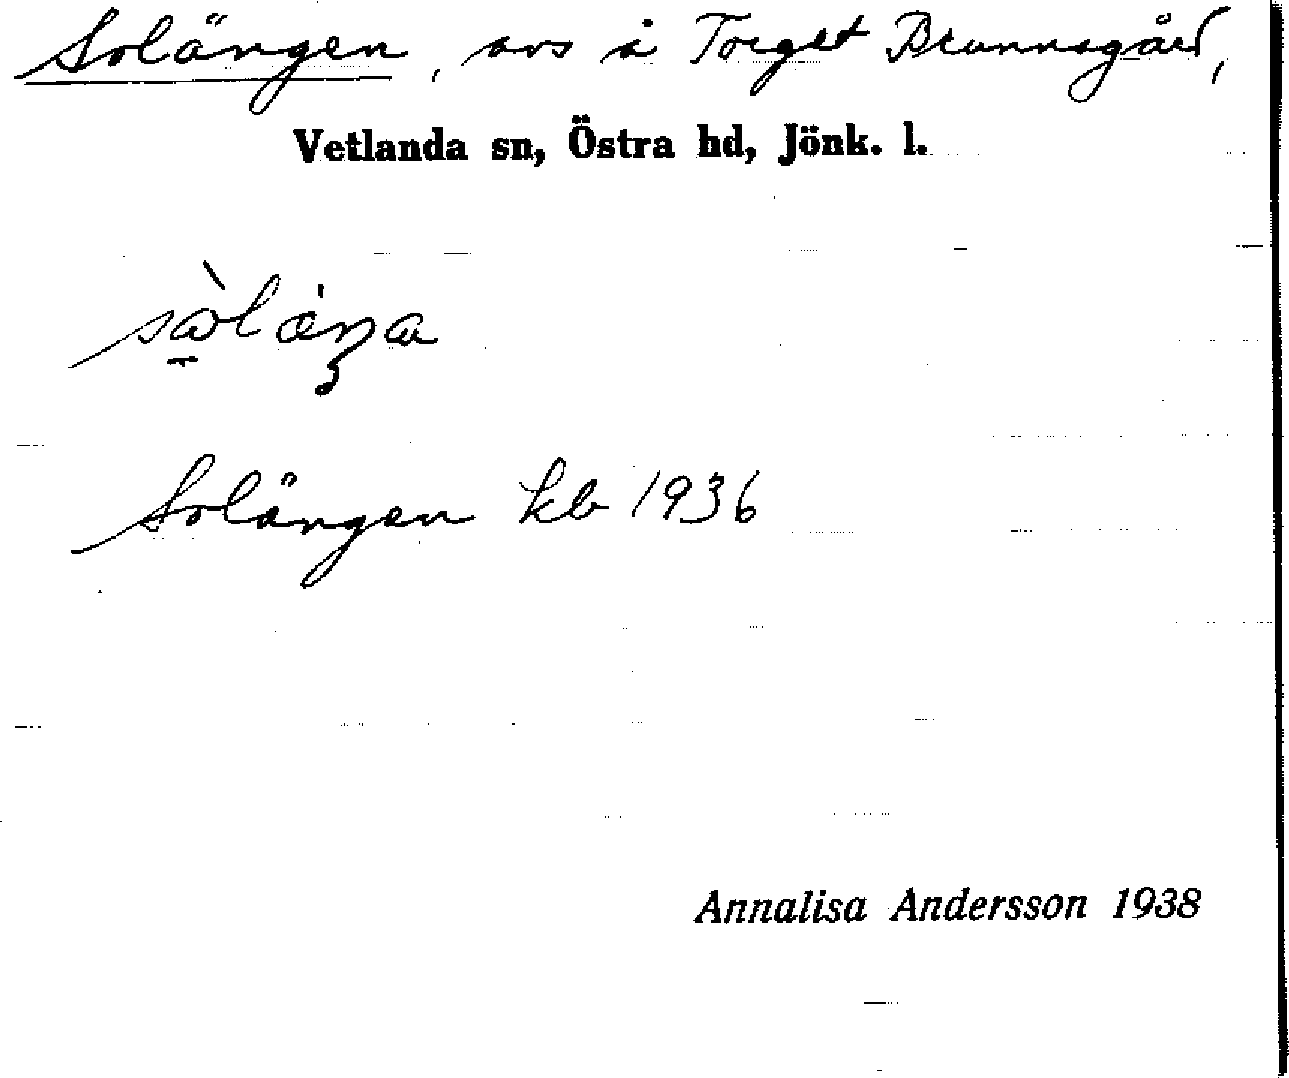 Solängen, avs å Torget Brunnsgård,
Vetlanda sn, Östra hd, Jönk. l.
Solängen kb 1936
Annalisa Andersson 1938